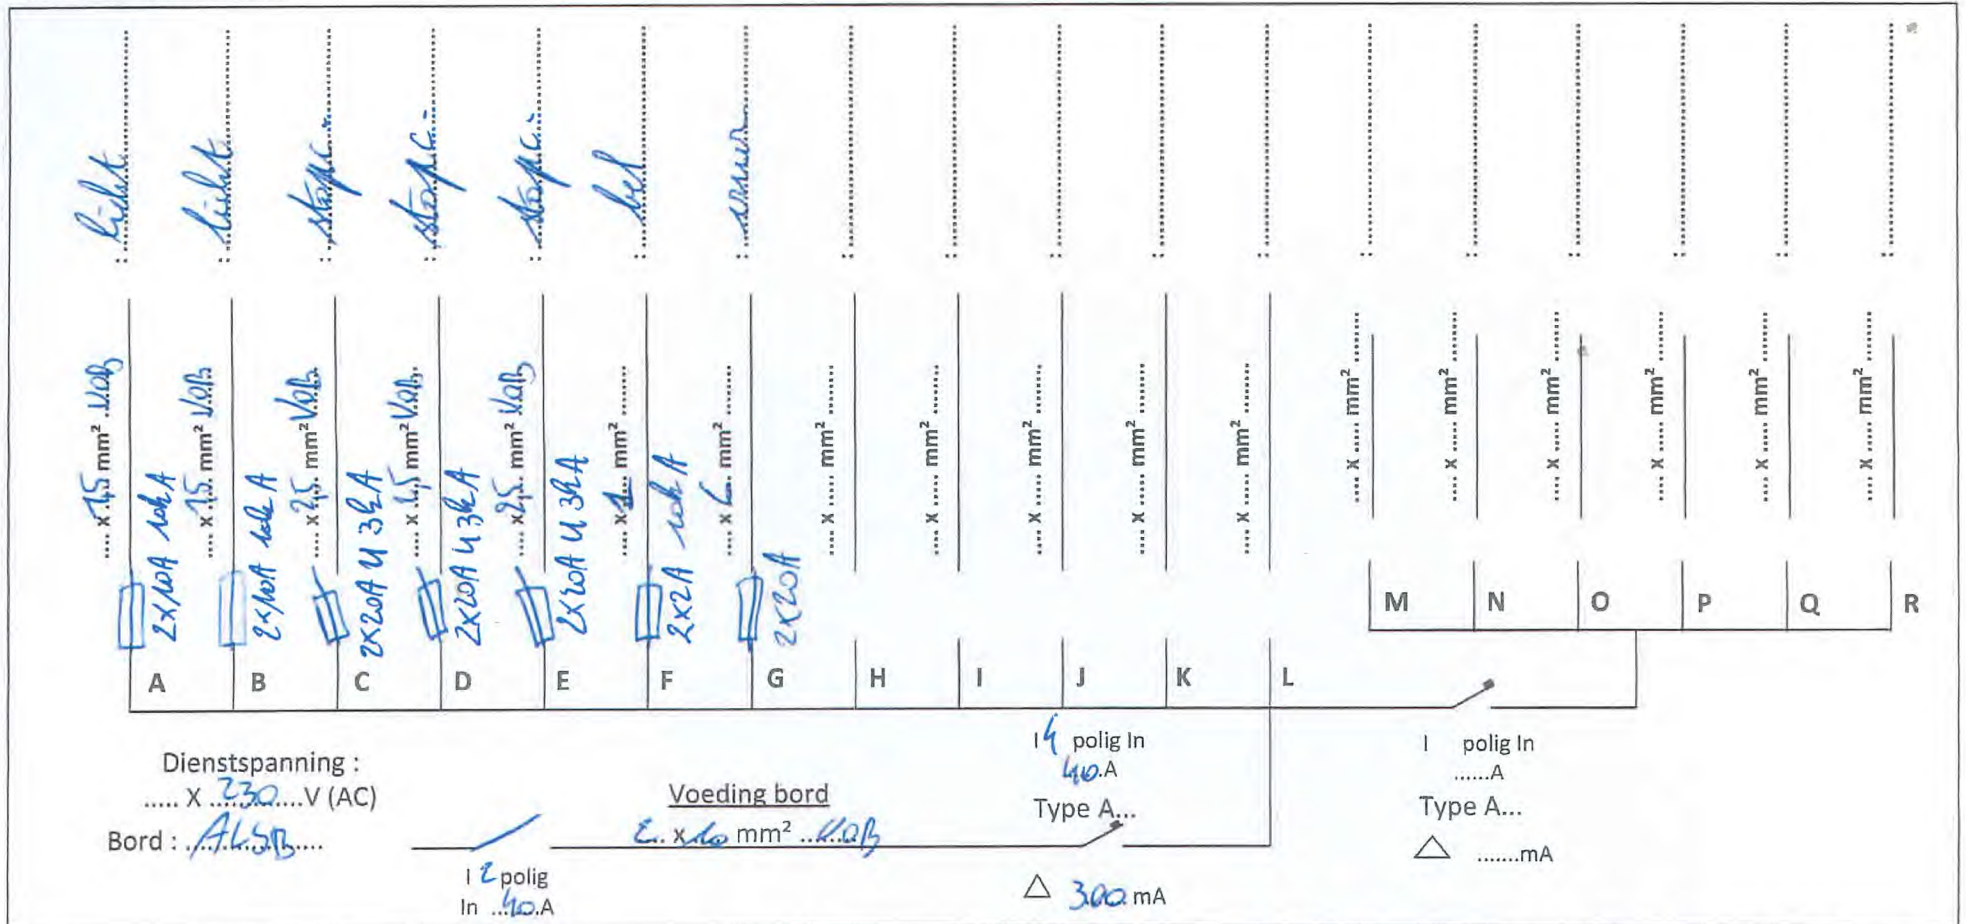 licht
licht
stopc.
stopc.
stopc.
bel
.... x 1,5 mm² VOB
.... x 1,5 mm² VOB
.... x 2,5 mm² VOB
.... x 2,5 mm² VOB
.... x 2,5 mm² VOB
.... x 1 mm² ........
.... x ...... mm² ........
.... x ...... mm² ........
.... x ...... mm² ........
.... x ...... mm² ........
.... x ...... mm² ........
.... x ...... mm² ........
.... x ...... mm² ........
.... x ...... mm² ........
.... x ...... mm² ........
.... x ...... mm² ........
.... x ...... mm² ........
2x10A 10kA
2x10A 10kA
2x20A 4 3kA
2x20A 4 3kA
2x20A 4 3kA
2x2A 10kA
2x20A
M N O P Q R
A B C D E F G H I J K L
Dienstspanning :
..... X 230 V (AC)
Bord : ALSB
I 2 polig
In 40.A
Voeding bord
2 x 10 mm² VOB
I 4 polig In
40.A
Type A...
△ 300 mA
I polig In
......A
Type A...
△ .......mA